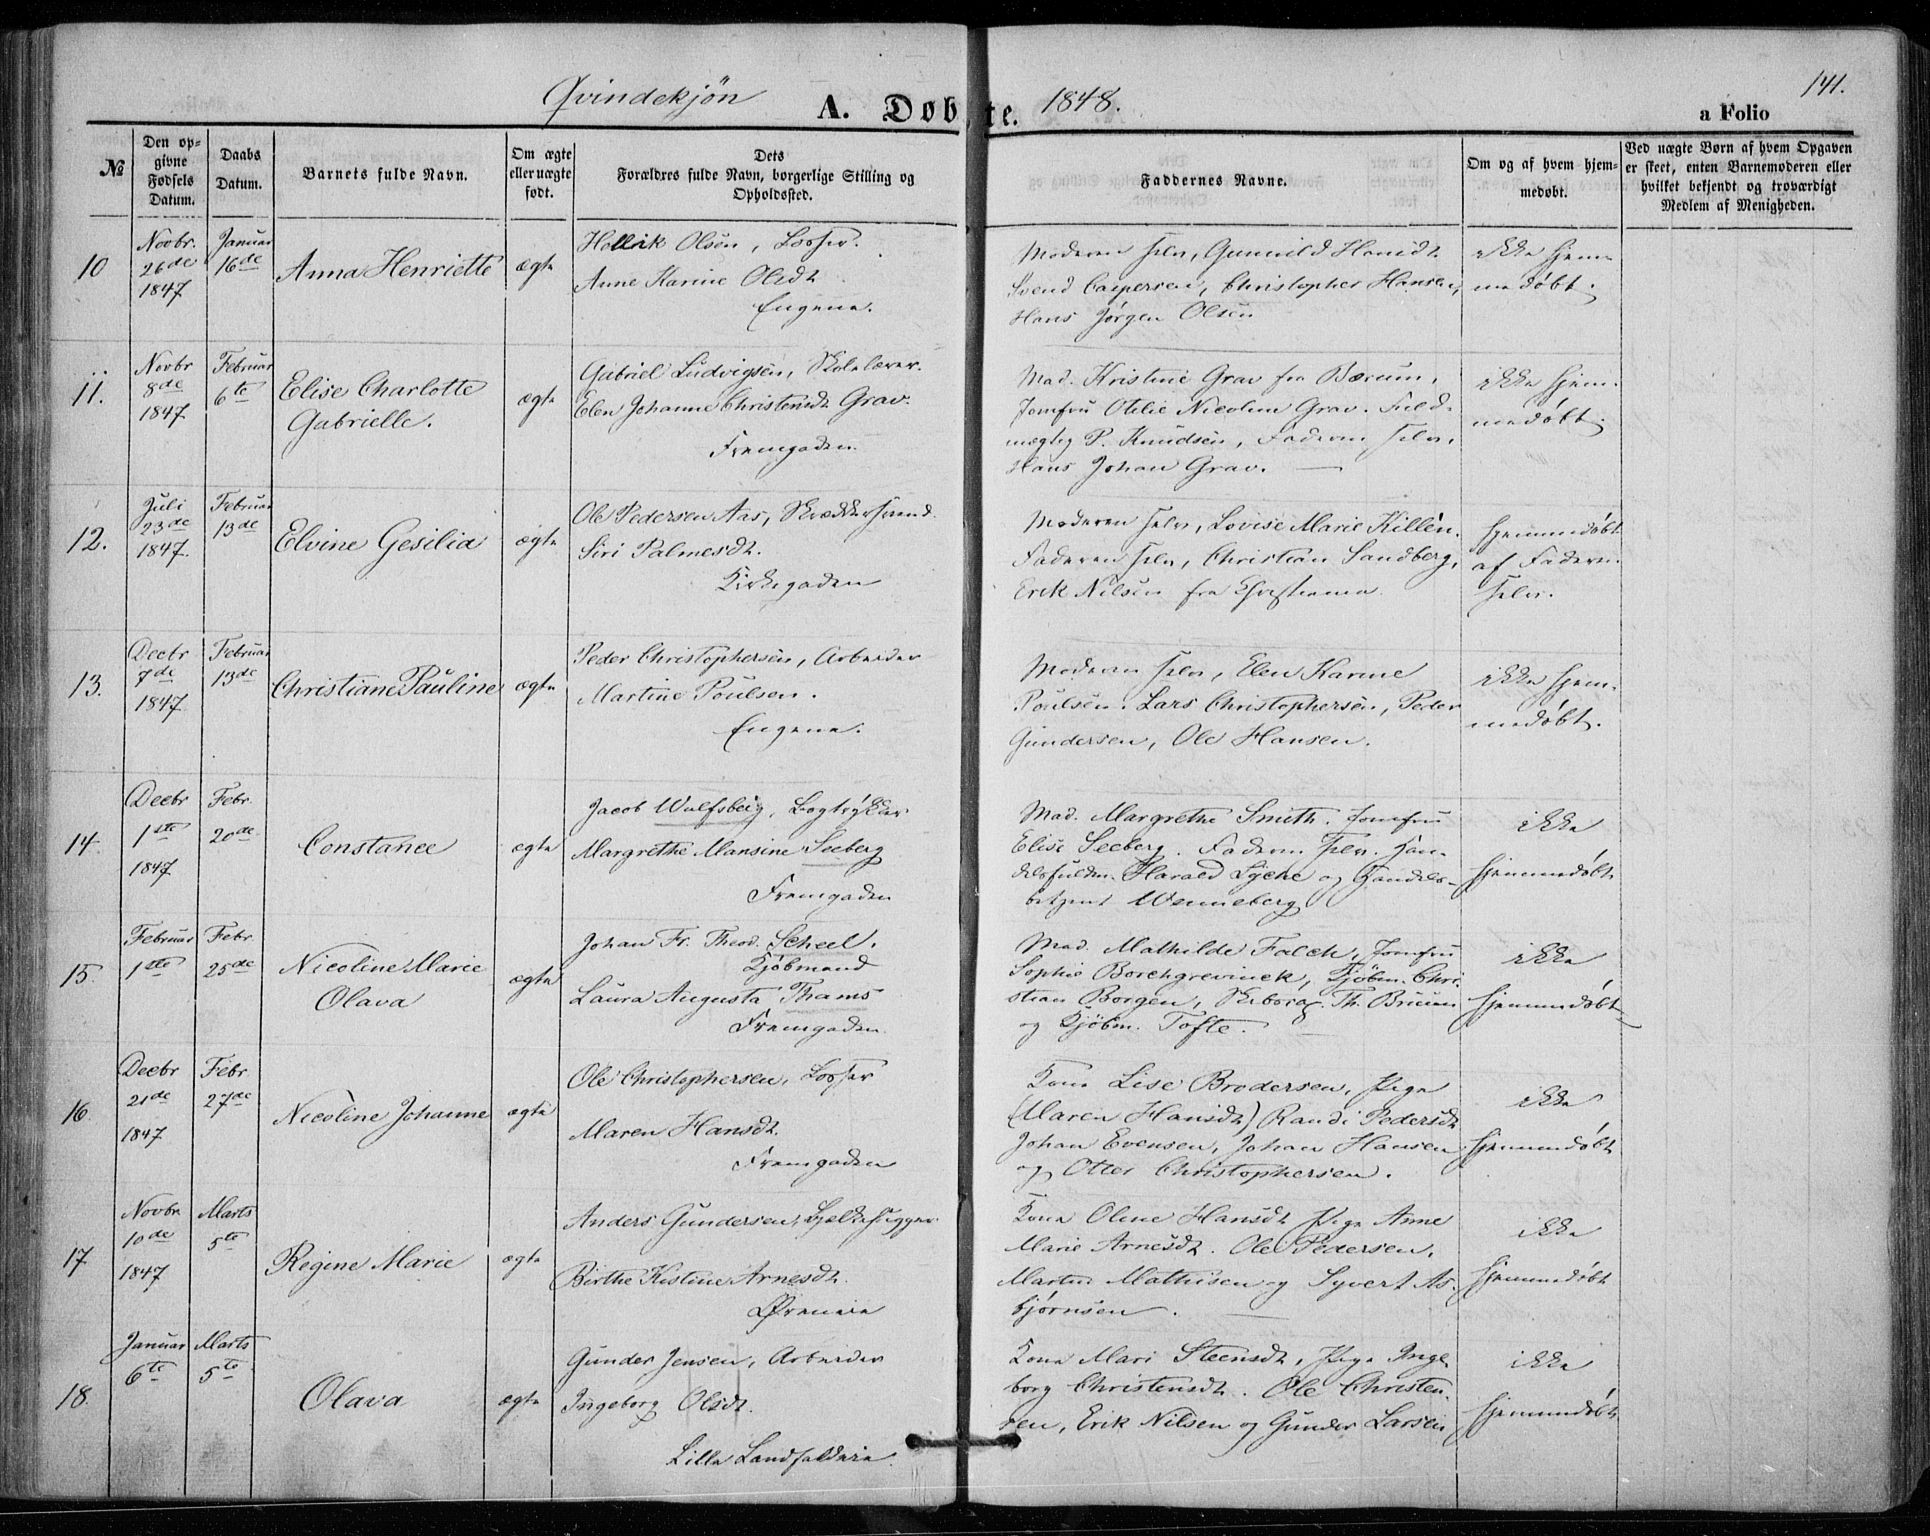 Qvindekjön A. Døbte. 1848. 141.
a Folio
№
Den op-
givne
Fødsels
Datum.
Daabs
Datum.
Barnets fulde Navn.
Om ægte
eller uægte
født.
Dets
Forældres fulde Navn, borgerlige Stilling og
Opholdssted.
Faddernes Navne.
Om og af hvem hjem-
medøbt.
Ved uægte Børn af hvem Opgaven
er skeet, enten Barnemoderen eller
hvilket bekjendt og troværdigt
Medlem af Menigheden.
10
Novbr.
26de
1847
Januar
16de
Anna Henriette
ægte
Olsen, Losser.
Anne Karine Olsdt
Engene.
Moderen selv, Gunnild Hansdt
Svend Caspersen, Christopher Hansen,
Hans Jørgen Olsen
ikke hjem-
medøbt.
11.
Novbr
8de
1847
Februar
6te
Elise Charlotte
Gabrielle.
ægte
Gabriel Ludvigsen, Skolelærer.
Elen Johanne Christensdt Grav.
Fremgaden.
Mad. Kristine Grav fra Bærum,
Jomfru Otilie Nicoline Grav. Fuld-
mægtig P. Knudsen, Faderen selv,
Hans Johan Grav.
ikke hjem-
medøbt.
12.
Juli
23de
1847.
Februar
13de
Elvine Gesilia
ægte
Ole Pedersen Aas, Skræddersvend.
Siri Palmesdt.
Kirkegaden
Moderen selv, Lovise Marie Killén.
Faderen selv, Christian Sandberg,
Erik Nilsen fra Christiania
hjemmedøbt
af Faderen
selv.
13.
Decbr
7de
1847
Februar
13de
Christiane Pauline
ægte
Peder Christophersen, Arbeider
Martine Poulsen.
Engene.
Moderen selv, Elen Karine
Poulsen. Lars Christophersen, Peder
Gundersen, Ole Hansen.
ikke hjem-
medøbt.
14
Decbr
1ste
1847
Febr.
20de
Constance
ægte
Jacob Wulfsberg, Bogtrykker
Margrethe Mansine Seeberg
Fremgaden
Mad. Margrethe Smith. Jomfru
Elise Seeberg. Faderen selv. Han-
delsfuldm. Harald Lyche og Handels-
betjent Wenneberg
ikke
hjemmedøbt
15.
Februar
1ste
Febr.
25de
Nicoline Marie
Olava
ægte
Johan Fr. Theod. Scheel.
Kjøbmand
Laura Augusta Thams
Fremgaden.
Mad. Mathilde Falch, Jomfru
Sophie Borchgrevinck, Kjøbm. Chri-
stian Borgen, Th. Bruun
og Kjøbm. Tofte.
ikke
hjemmedøbt
16.
Decbr
21de
1847
Febr.
27de
Nicoline Johanne
ægte
Ole Christophersen, Losser
Maren Hansdt.
Fremgaden
Kone Lise Brodersen, Pige
(Maren Hansdt) Randi Pedersdt
Johan Evensen, Johan Hansen
og Otter Christophersen.
ikke
hjemmedøbt
17
Novbr
10de
1847
Marts
5te
Regine Marie
ægte
Anders Gundersen, Bjelkehugger
Birthe Kistine Arnesdt.
Øreneie
Kone Oline Hansdt Pige Anne
Marie Arnesdt. Ole Pedersen.
Marten Mathisen og Syvert As-
bjørnsen.
ikke
hjemmedøbt
18.
Januar
6te
Marts
5te
Olava
ægte
Gunder Jensen, Arbeider
Ingeborg Olsdt.
Lille Landfalderie.
Kone Mari Steensdt, Pige Inge
borg Christensdt. Ole Christen-
sen, Erik Nilsen og Gunder Larsen
ikke
hjemmedøbt